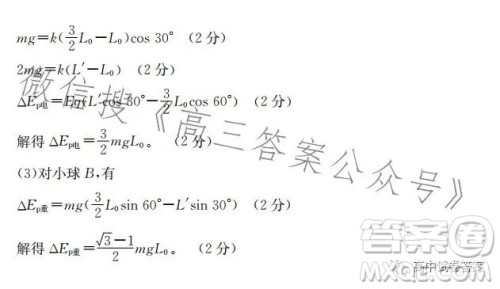 mg=k(3/2 L₀−L₀)cos 30° (2分)
2mg=k(L′−L₀) (2分)
ΔEp电=Eq(L′cos 30°−3/2 L₀cos 60°) (2分)
解得 ΔEp电=3/2 mgL₀。 (2分)
(3)对小球 B,有
ΔEp重=mg(3/2 L₀sin 60°−L′sin 30°) (2分)
解得 ΔEp重=(√3−1)/2 mgL₀。 (2分)
微信搜《高三答案公众号》
答案圈
高中试卷答案
MXQE.COM